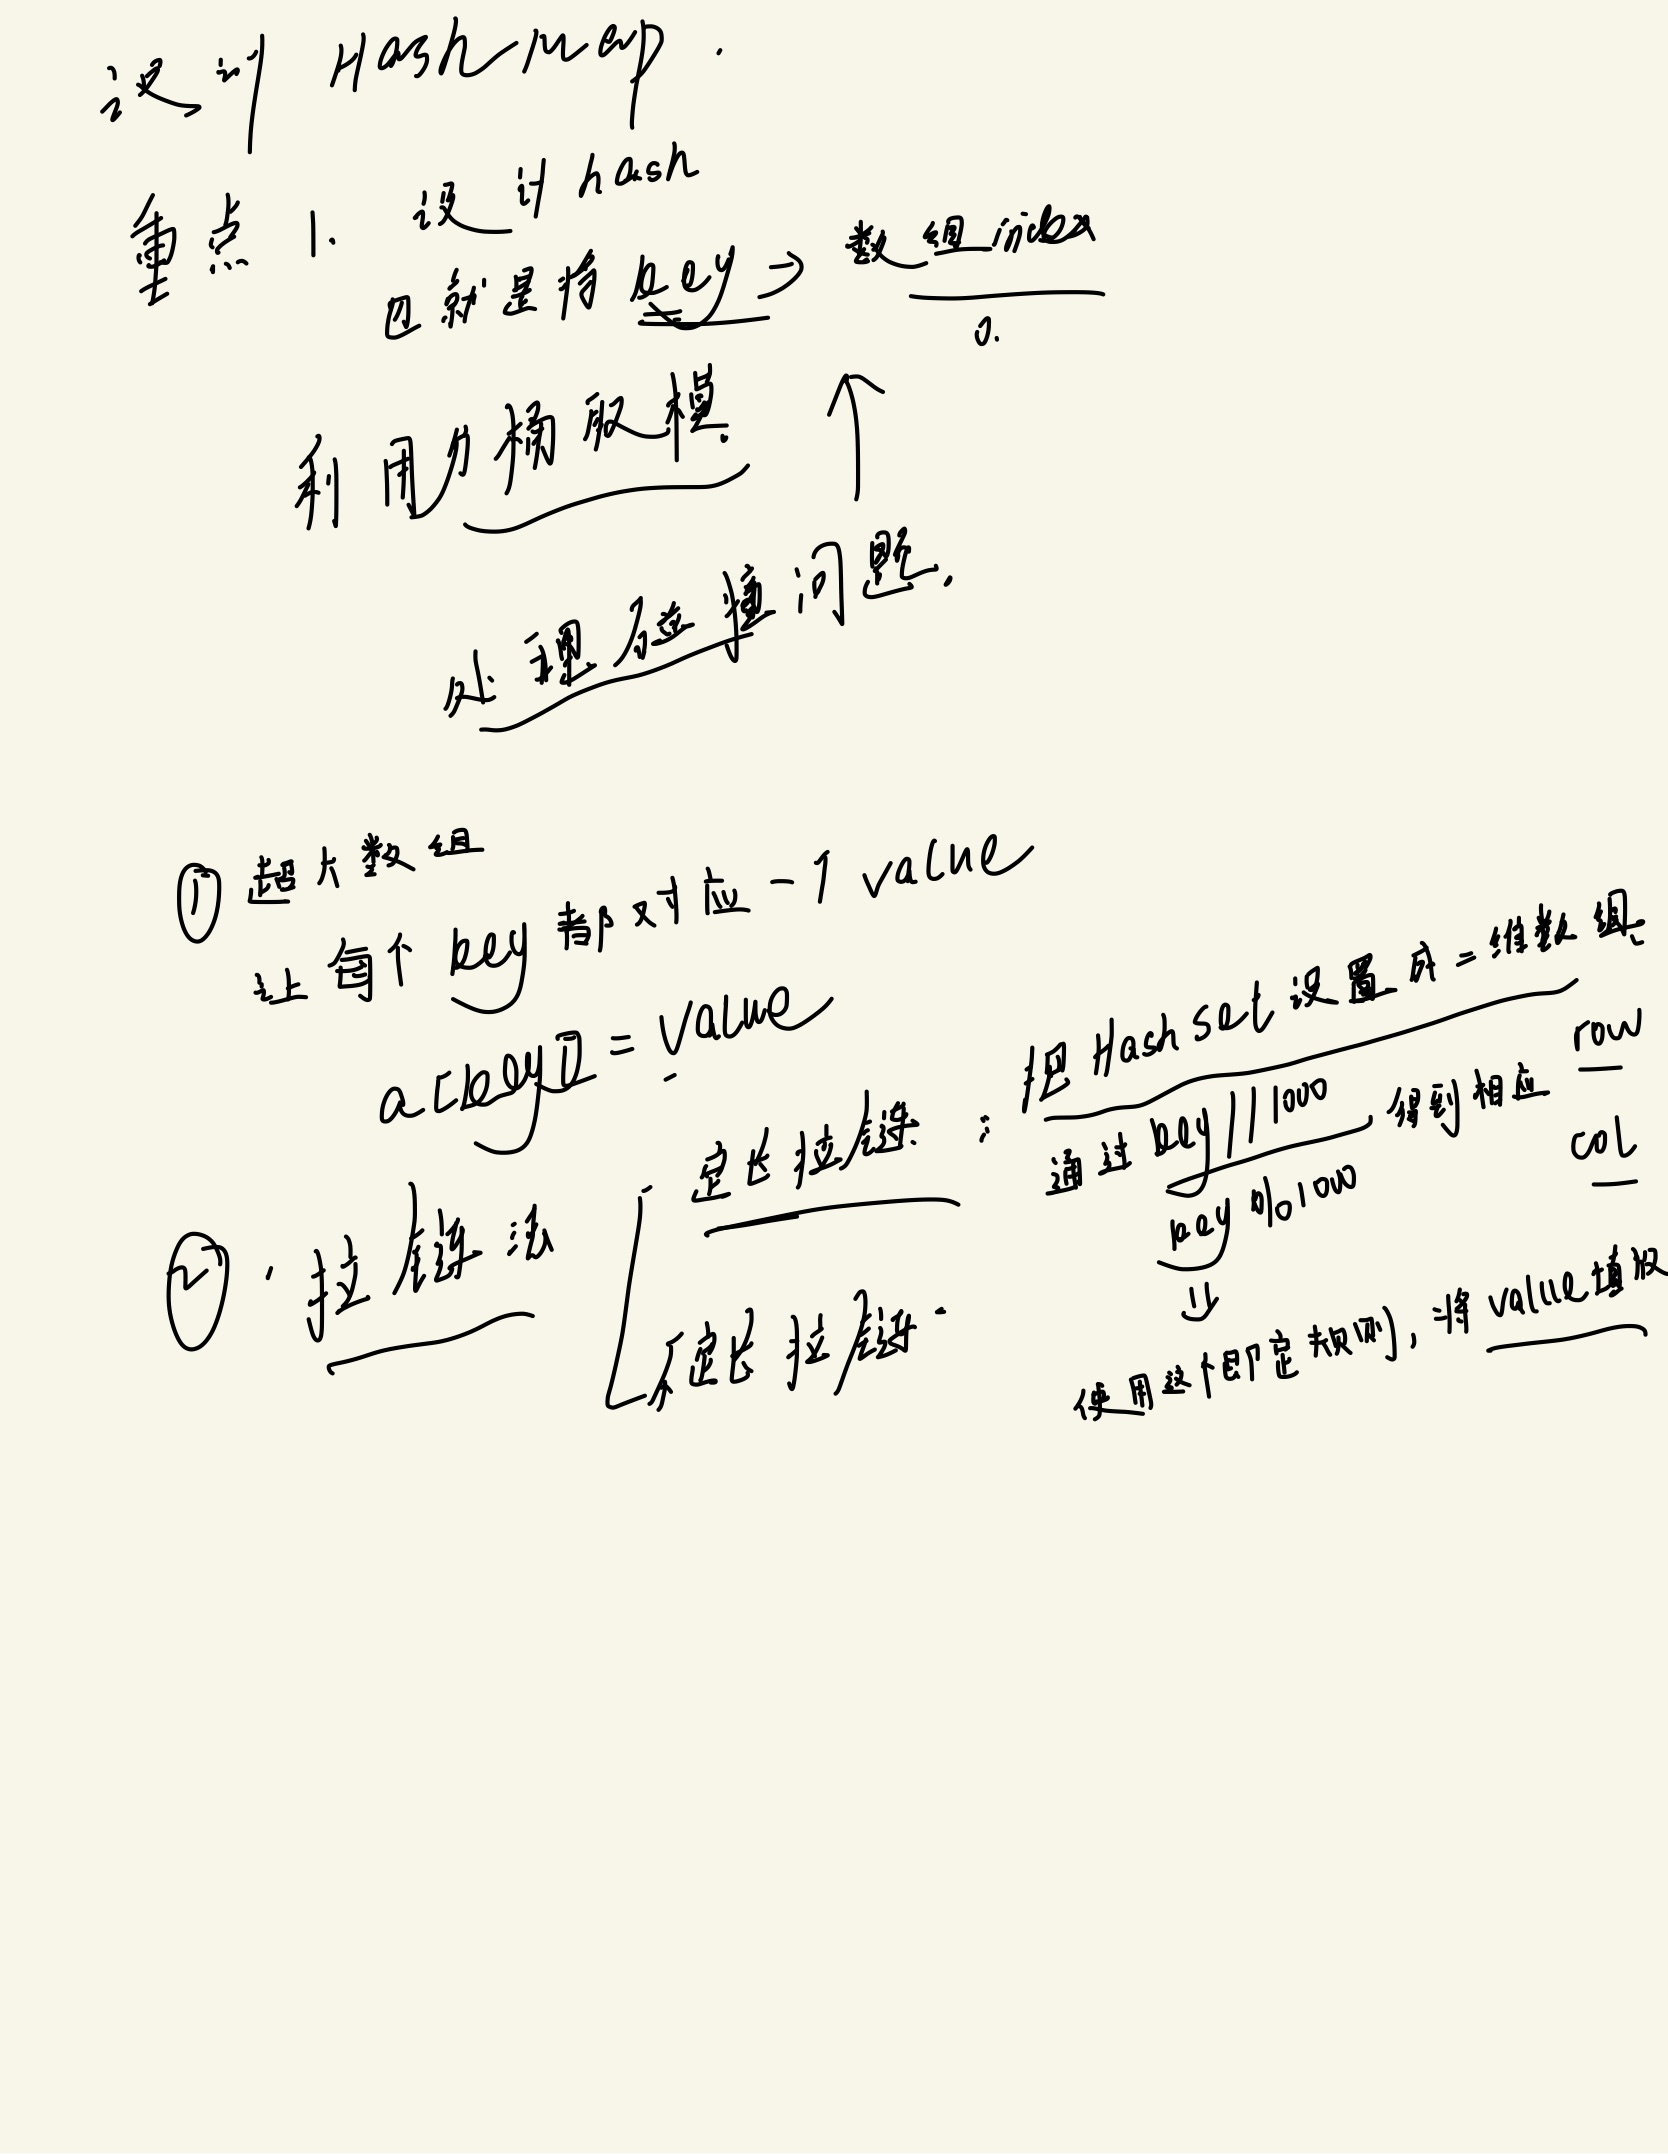 设计 HashMap.
重点 1. 设计 hash
也就是将 key → 数组 index
0.
利用分桶取模.
处理碰撞问题.
① 超大数组
让每个 key 都对应一个 value
a[key] = value
② · 拉链法
定长拉链 : 把 Hash set 设置成二维数组.
通过 key // 1000 得到相应 row
key % 1000 col
⇓
不定长拉链
使用这个既定规则, 将 value 填放